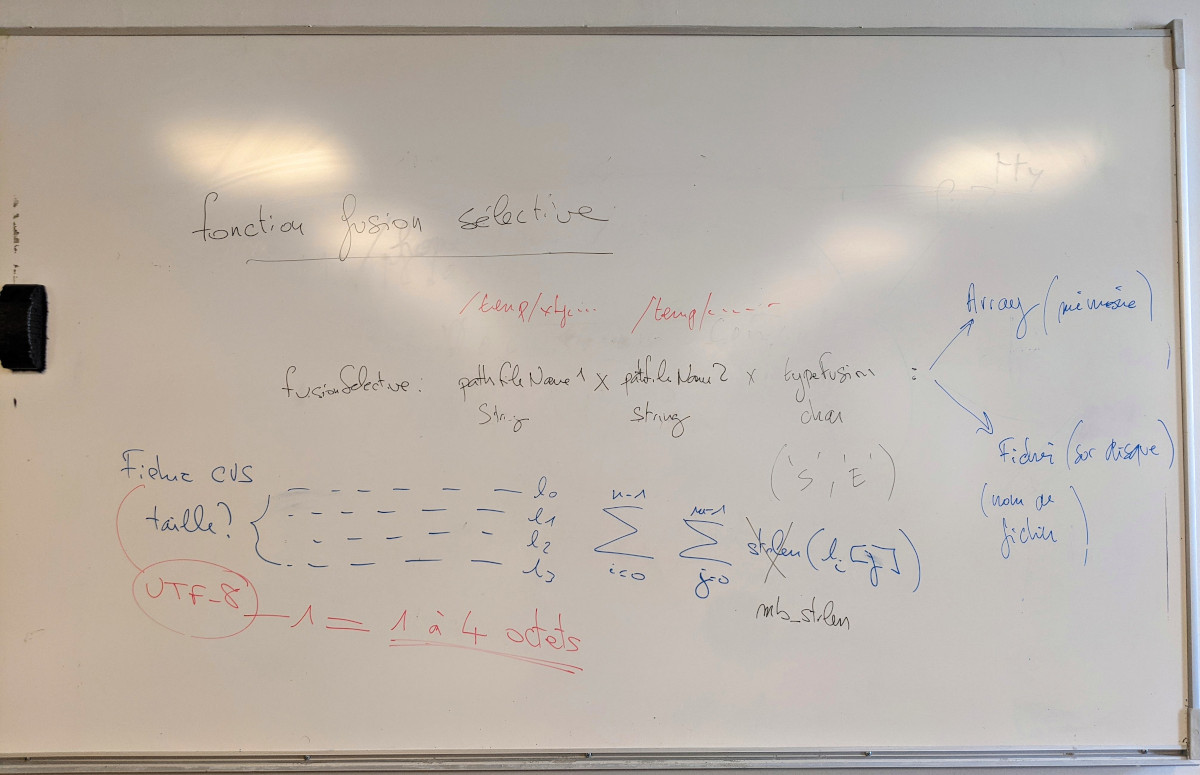 fonction fusion sélective
/temp/xty... /temp/.....
fusionSelective : pathfileName1 x pathfileName2 x typeFusion :
String string char
('S', 'E')
Array (mémoire)
Fichier (sur disque)
(nom de
fichier)
Fichier CVS
taille?
l0
l1
l2
l3
n-1 m-1
∑ ∑ strlen(li[j])
i=0 j=0
mb_strlen
UTF-8 — 1 = 1 à 4 octets